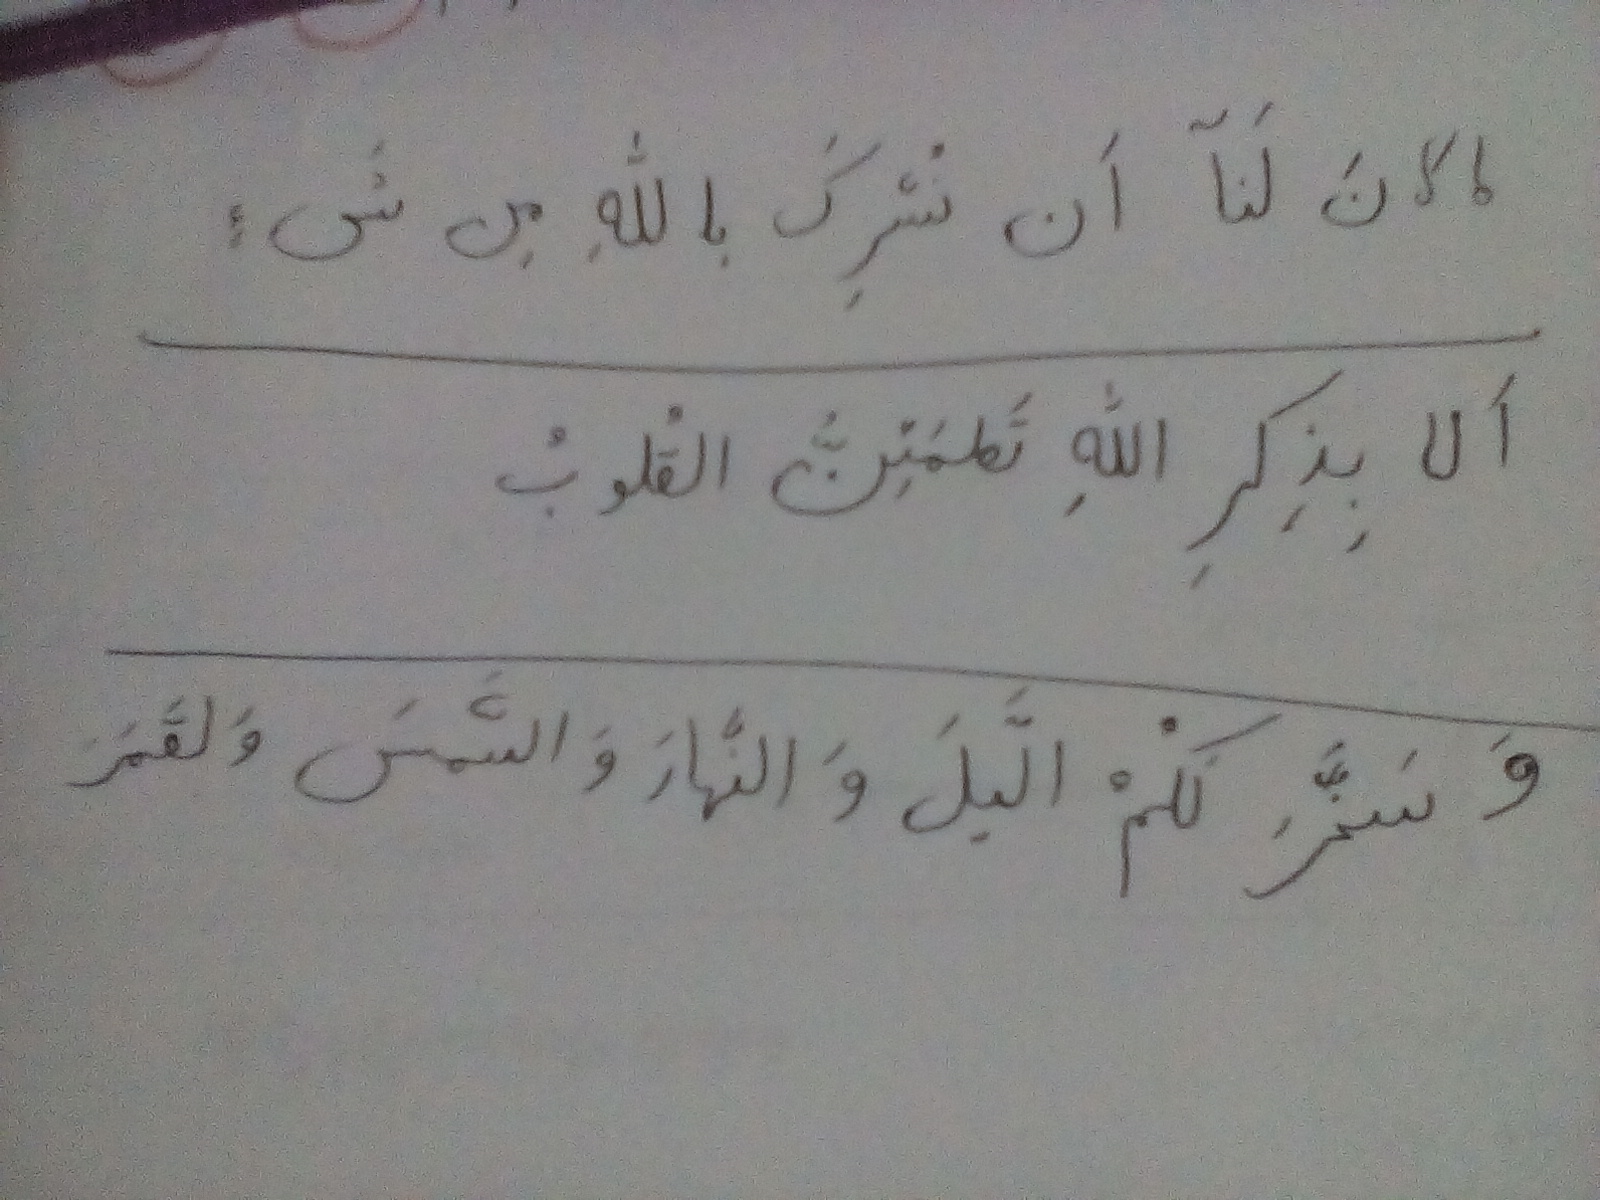 ما كانَ لَنَآ أَن نُشْرِكَ بِاللهِ مِن شَىءٍ
أَلا بِذِكِرِ اللهِ تَطمَئِنُّ القُلوبُ
وَ سَخَّرَ لَكُمْ الَّيلَ وَ النَّهارَ وَ الشَّمسَ وَ لقَمَرَ